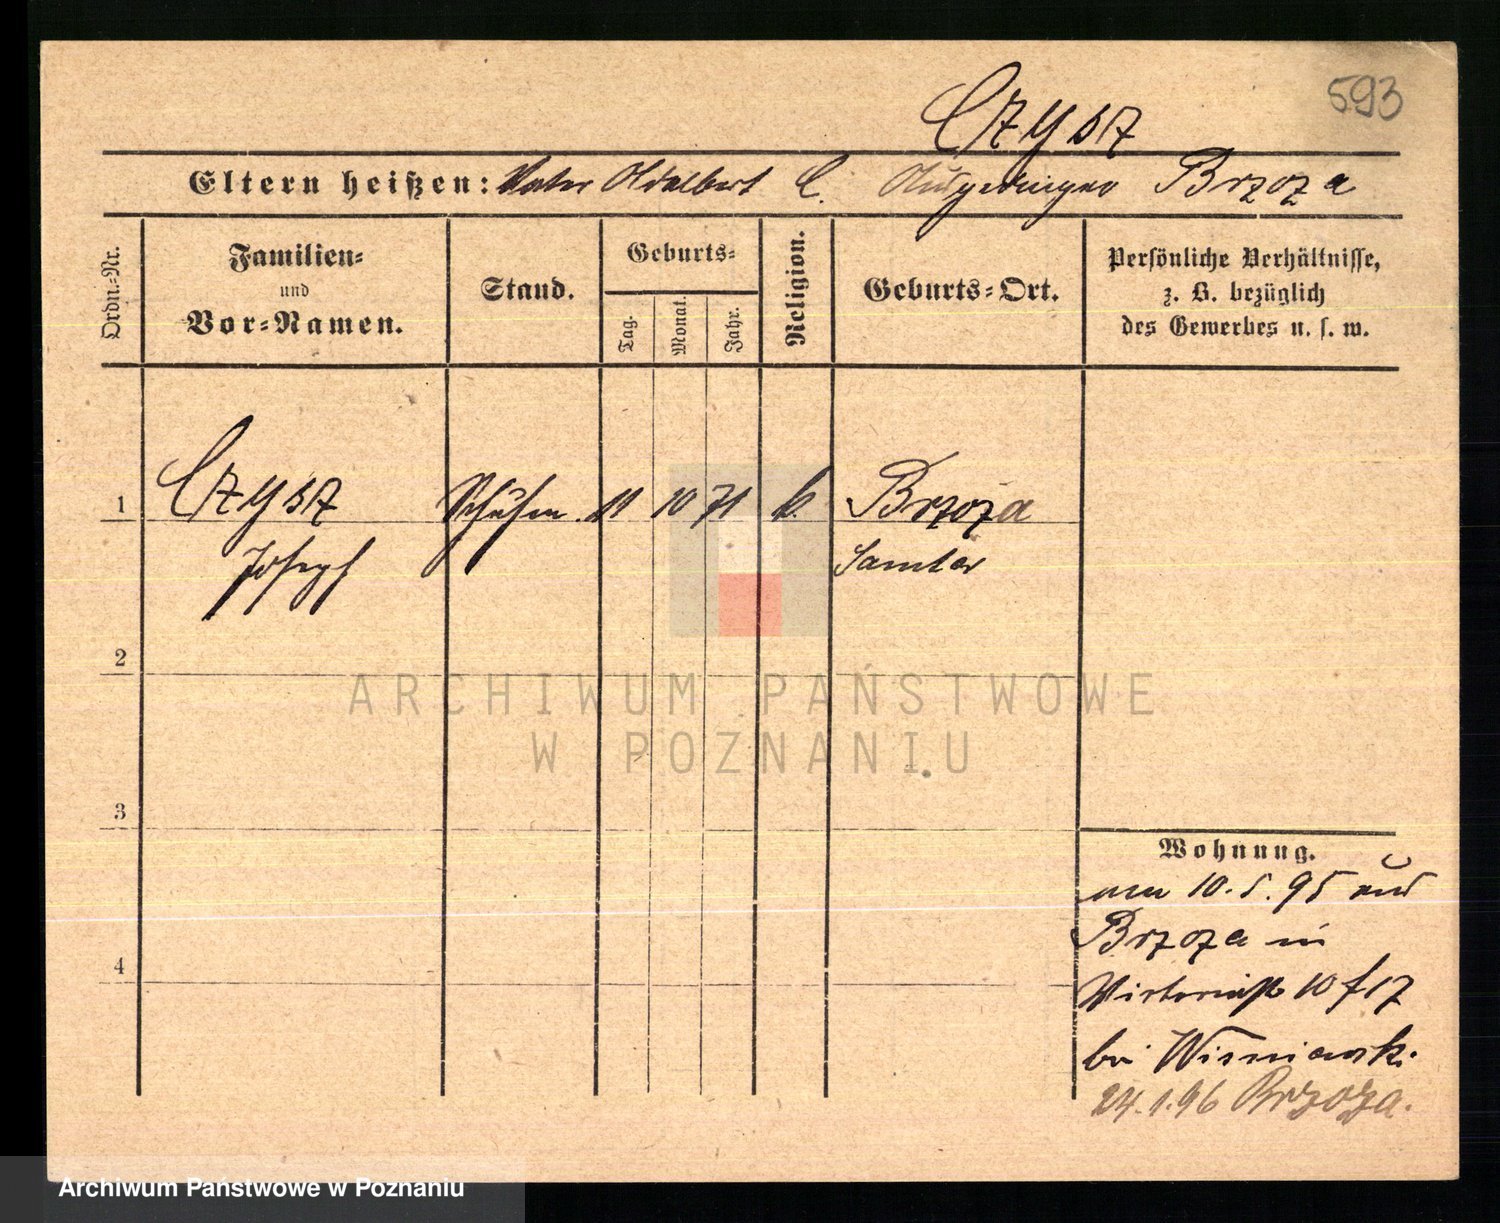 593
Czysz
Eltern heißen: Vater Adalbert C. Ausgedinger Brzoza
Ordn.-Nr.
Familien-
und
Vor-Namen.
Stand.
Geburts-
Tag.
Monat.
Jahr.
Religion.
Geburts-Ort.
Persönliche Verhältnisse,
z. B. bezüglich
des Gewerbes u. s. w.
1 Czysz 11 10 71 k. Brzoza
Joseph Samter
2
ARCHIWUM PAŃSTWOWE
W POZNANIU
3
Wohnung.
am 10.5.95 aus
Brzoza in
4
10 f 17
bei Wisniewsk.
24.1.96 Brzoza.
Archiwum Państwowe w Poznaniu